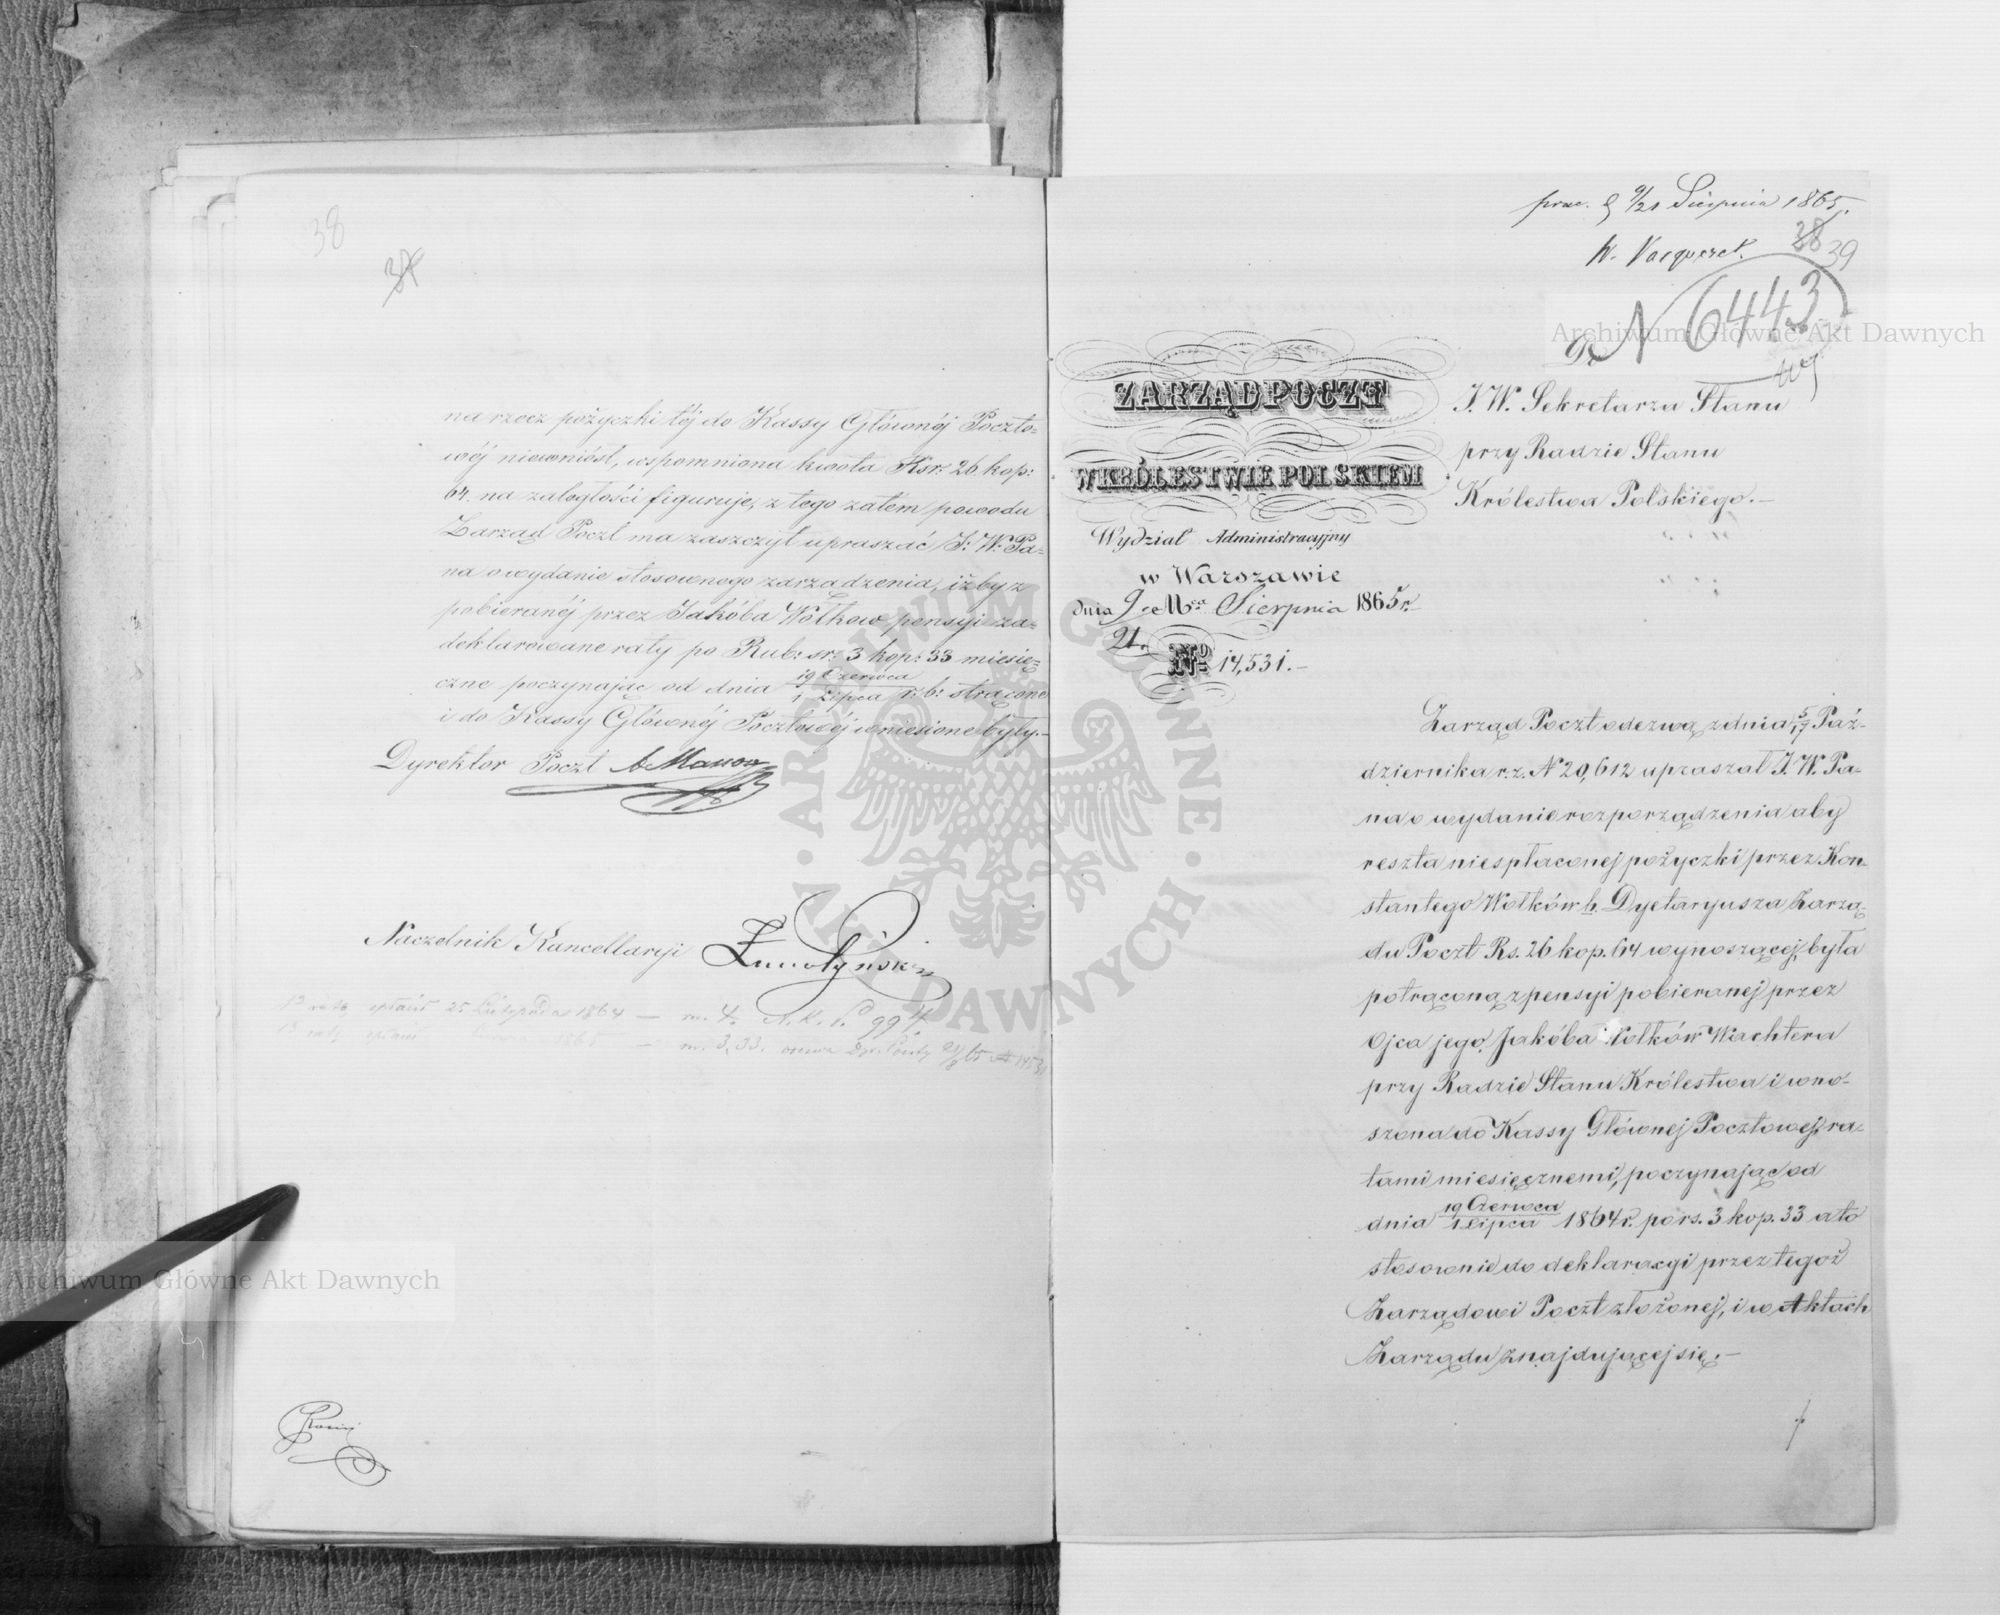 38
na rzecz pożyczki téj do Kassy Głównéj Poczto=
wéj niewniósł, wspomniona kwota Rsr: 26 kop:
64. na zaległości figuruje, z tego zatém powodu
Zarząd Poczt ma zaszczyt upraszać J: W: Pa=
na o wydanie stosownego zarządzenia, iżby z
pobieranéj przez Jakóba Wołkow pensyi za=
deklarowane raty po Rub: sr: 3 kop: 33 miesię=
czne poczynając od dnia 19 Czerwca / 1 Lipca r: b: strącone
i do Kassy Głównéj Pocztowéj wniesione były.—
Dyrektor Poczt
Naczelnik Kancellaryi
25 Listopada 1864 — rs. 4.
1865 — rs. 3,33.
9/21 Sierpnia 1865.
38 39
N 6443
ZARZĄD POCZT
W KRÓLESTWIE POLSKIEM
Wydział Administracyjny
w Warszawie
dnia 9/21 Mca Sierpnia 1865 r.
No 14,531.—
Do
J. W. Sekretarza Stanu
przy Radzie Stanu
Królestwa Polskiego.—
Zarząd Poczt odezwą z dnia 5/17 Paź-
dziernika r. z. N 20,612 upraszał J. W. Pa-
na o wydanie rozporządzenia aby
reszta niespłaconej pożyczki przez Kon-
stantego Wołków b. Dyetaryusza Zarzą-
du Poczt Rs. 26 kop. 64 wynoszącej, była
potrąconą z pensyi pobieranej przez
Ojca jego, Jakóba Wołków Wachtera
przy Radzie Stanu Królestwa i wno-
szona do Kassy Głównej Pocztowej, ra-
tami miesięcznemi, poczynając od
dnia 19 Czerwca / 1 Lipca 1864 r. po rs. 3 kop. 33 a to
stosownie do deklaracyi przez tegoż
Zarządowi Poczt złożonej, i w Aktach
Zarządu znajdującej się.—
Archiwum Główne Akt Dawnych
Archiwum Główne Akt Dawnych
ARCHIWUM GŁÓWNE AKT DAWNYCH